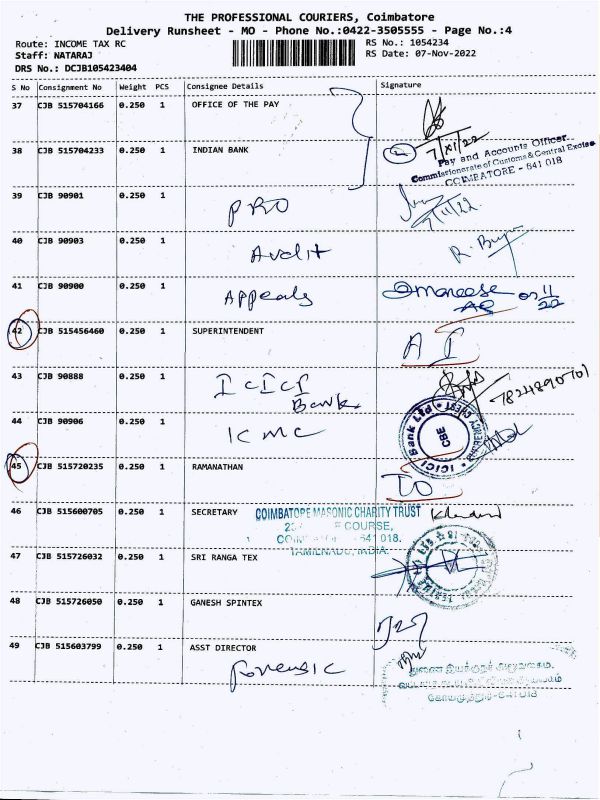 THE PROFESSIONAL COURIERS, Coimbatore
Delivery Runsheet - MO - Phone No.:0422-3505555 - Page No.:4
Route: INCOME TAX RC
RS No.: 1054234
Staff: NATARAJ
RS Date: 07-Nov-2022
DRS No.: DCJB105423404
S No Consignment No Weight PCS Consignee Details Signature
37 CJB 515704166 0.250 1 OFFICE OF THE PAY
7/XI/22
38 CJB 515704233 0.250 1 INDIAN BANK
Pay and Accounts Officer
Commissionerate of Customs & Central Excise
COIMBATORE - 641 018
39 CJB 90901 0.250 1 PRO
7/11/22
40 CJB 90903 0.250 1 Audit
41 CJB 90900 0.250 1 Appeals
07 11/22
42 CJB 515456460 0.250 1 SUPERINTENDENT AI
43 CJB 90888 0.250 1 ICICI Bank
7824890701
44 CJB 90906 0.250 1 KMC
ICICI Bank Ltd
CBE
45 CJB 515720235 0.250 1 RAMANATHAN TO
46 CJB 515600705 0.250 1 SECRETARY COIMBATORE MASONIC CHARITY TRUST
COURSE,
641 018.
TAMILNADU, INDIA.
47 CJB 515726032 0.250 1 SRI RANGA TEX
48 CJB 515726050 0.250 1 GANESH SPINTEX
49 CJB 515603799 0.250 1 ASST DIRECTOR
Forensic
துணை இயக்குநர் அலுவலகம்,
கோயமுத்தூர்-641018